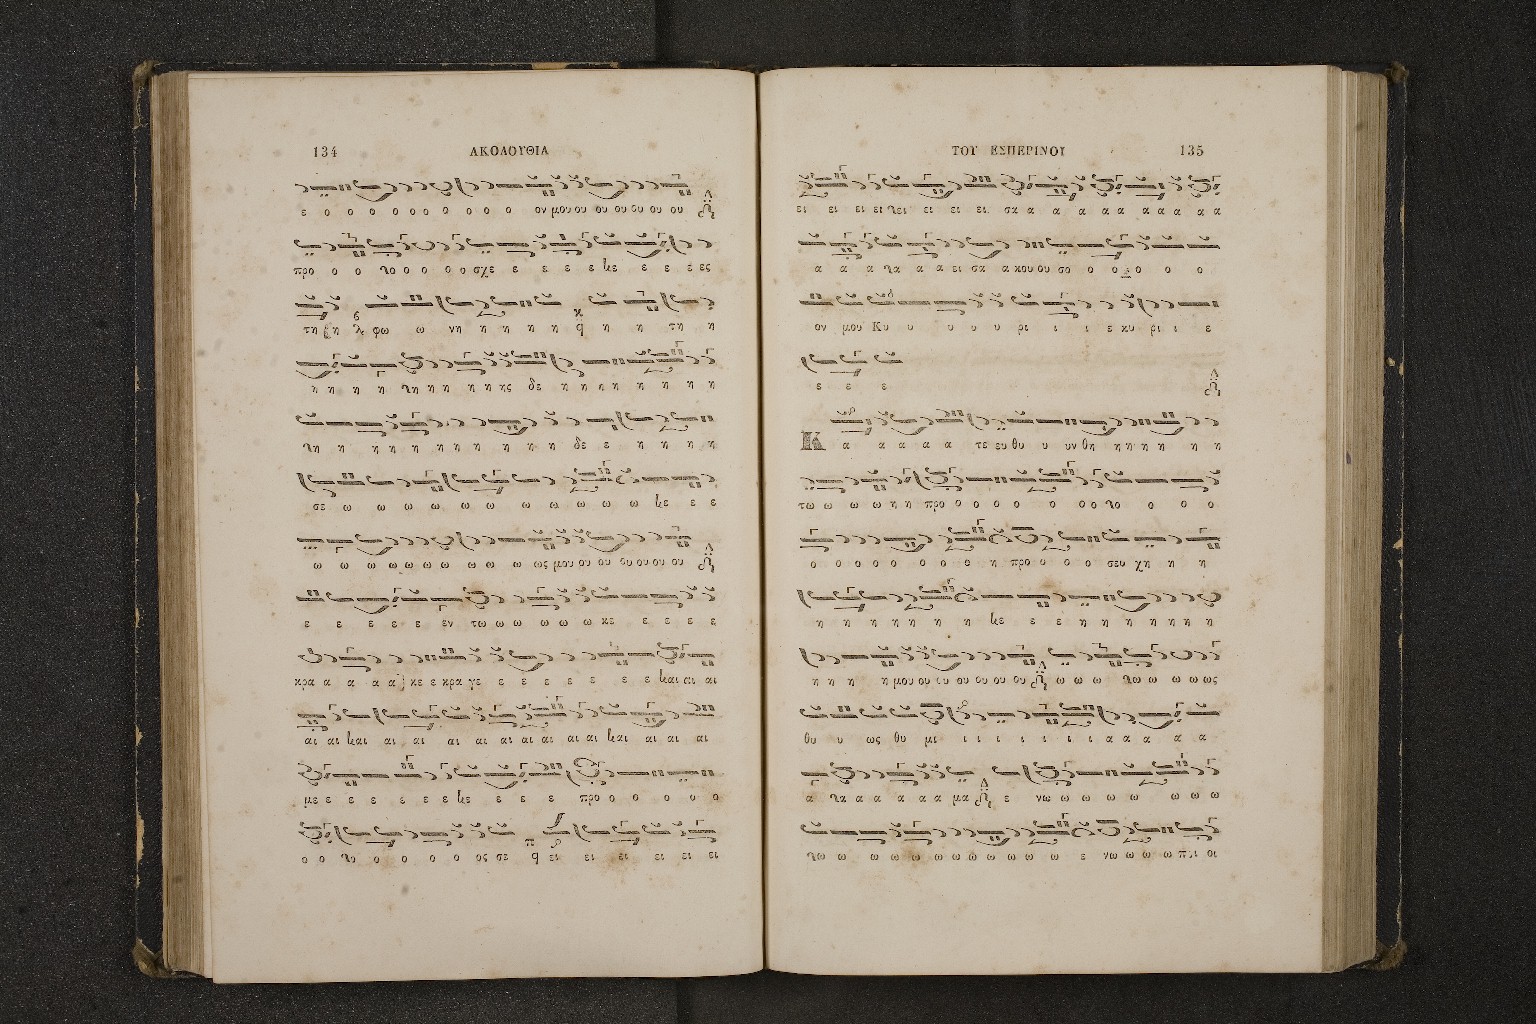 134 ΑΚΟΛΟΥΘΙΑ
ε ο ο ο ο ο ο ο ο ο ο ο ον μου ου ου ου ου ου ου
προ ο ο χο ο ο ο ο σχε ε ε ε ε κε ε ε ε ες
τη φω ω νη η η η η η η τη η
η η η η χη η η η η ης δε η η η η η η η η
χη η η η η η η η η η δε ε η η η η
σε ω ω ω ω ω ω ω ω ω ω ω κε ε ε
ω ω ω ω ω ω ω ω ω ω ως μου ου ου ου ου ου ου
ε ε ε ε ε ε εν τω ω ω ω ω ω κε ε ε ε ε
κρα α α α α κε ε κρα γε ε ε ε ε ε ε ε και αι αι
αι αι και αι αι αι αι αι αι αι αι αι και αι αι αι
με ε ε ε ε ε ε ε κε ε ε ε προ ο ο ο ο ο
ο ο χο ο ο ο ο ο ος σε ει ει ει ει ει ει
ΤΟΥ ΕΣΠΕΡΙΝΟΥ 135
ει ει ει ει χει ει ει ει σα α α α α α α α α α
α α α χα α α ει σα α κου ου σο ο ο ο ο ο
ον μου Κυ υ υ υ υ υ ρι ι ι ε κυ ρι ι ε
ε ε ε
Κ α α α α α τε ευ θυ υ υν θη η η η η η η
τω ω ω ω η η προ ο ο ο ο ο ο ο χο ο ο ο
ο ο ο ο ο ο ο ο η προ ο ο ο σευ χη η η
η η η η η η η κε ε ε η η η η η η η
η η η η μου ου ου ου ου ου ου ω ω ω χω ω ω ω ως
θυ υ ως θυ μι ι ι ι ι ι ι ι α α α α α
α χα α α α α α μα ε νω ω ω ω ω ω ω ω
χω ω ω ω ω ω ω ω ω ω ω ω ε νω ω ω ω πι οι